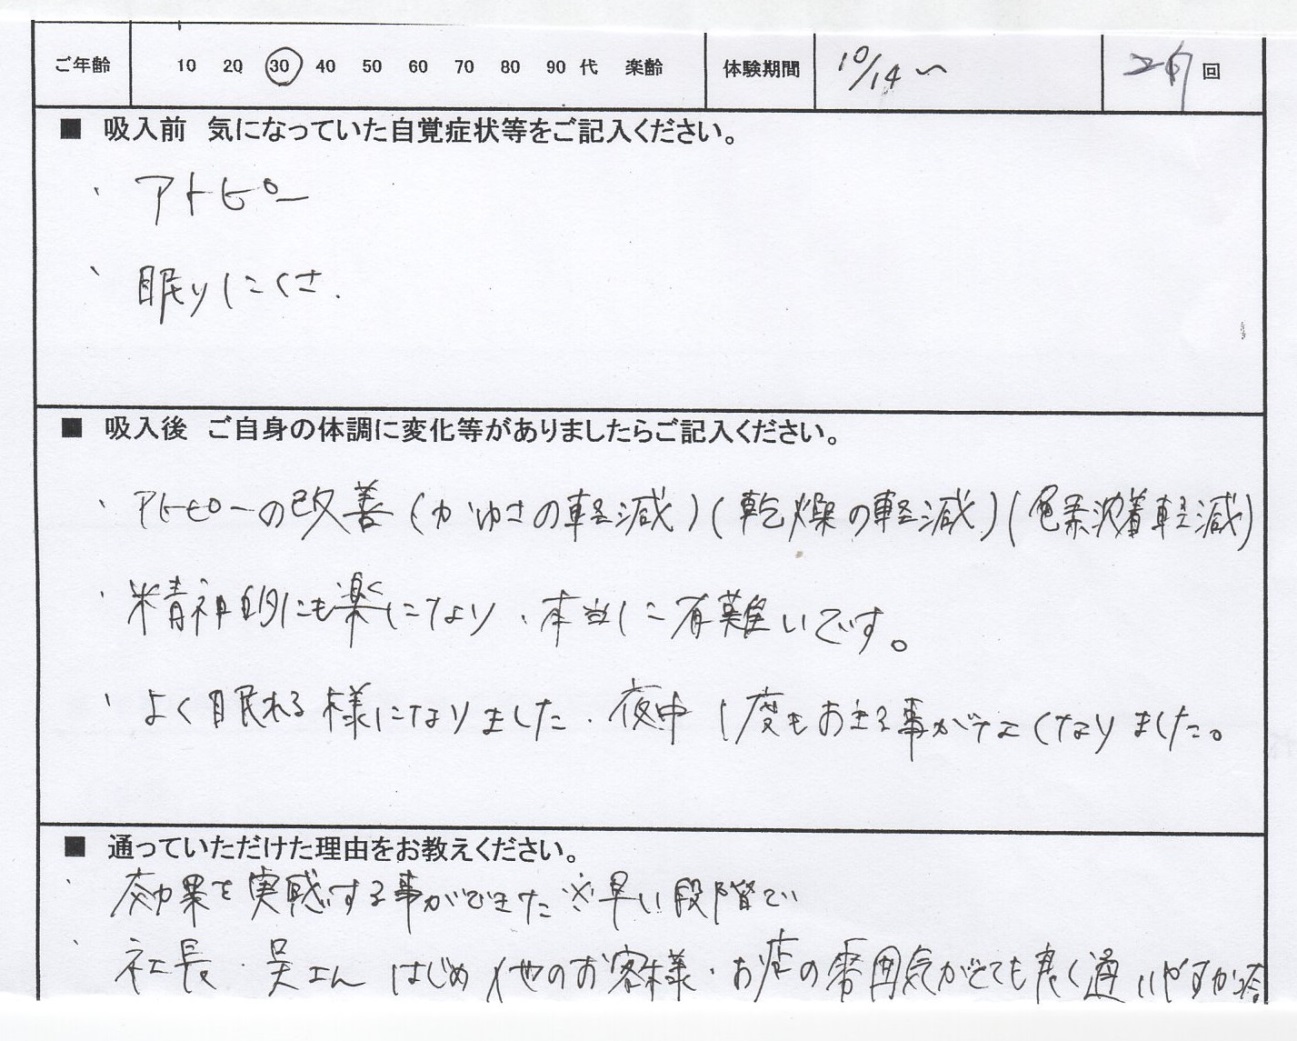 ご年齢 10 20 30 40 50 60 70 80 90 代 楽齢 体験期間 10/14〜 回
■ 吸入前 気になっていた自覚症状等をご記入ください。
・アトピー
・眠りにくさ.
■ 吸入後 ご自身の体調に変化等がありましたらご記入ください。
・アトピーの改善(かゆさの軽減)(乾燥の軽減)(色素沈着軽減)
・精神的にも楽になり、本当に有難いです。
・よく眠れる様になりました.夜中1度もおきる事がなくなりました。
■ 通っていただけた理由をお教えください。
・効果を実感する事ができた ※早い段階で
・社長・呉さん はじめ 他のお客様・お店の雰囲気がとても良く通いやすかった